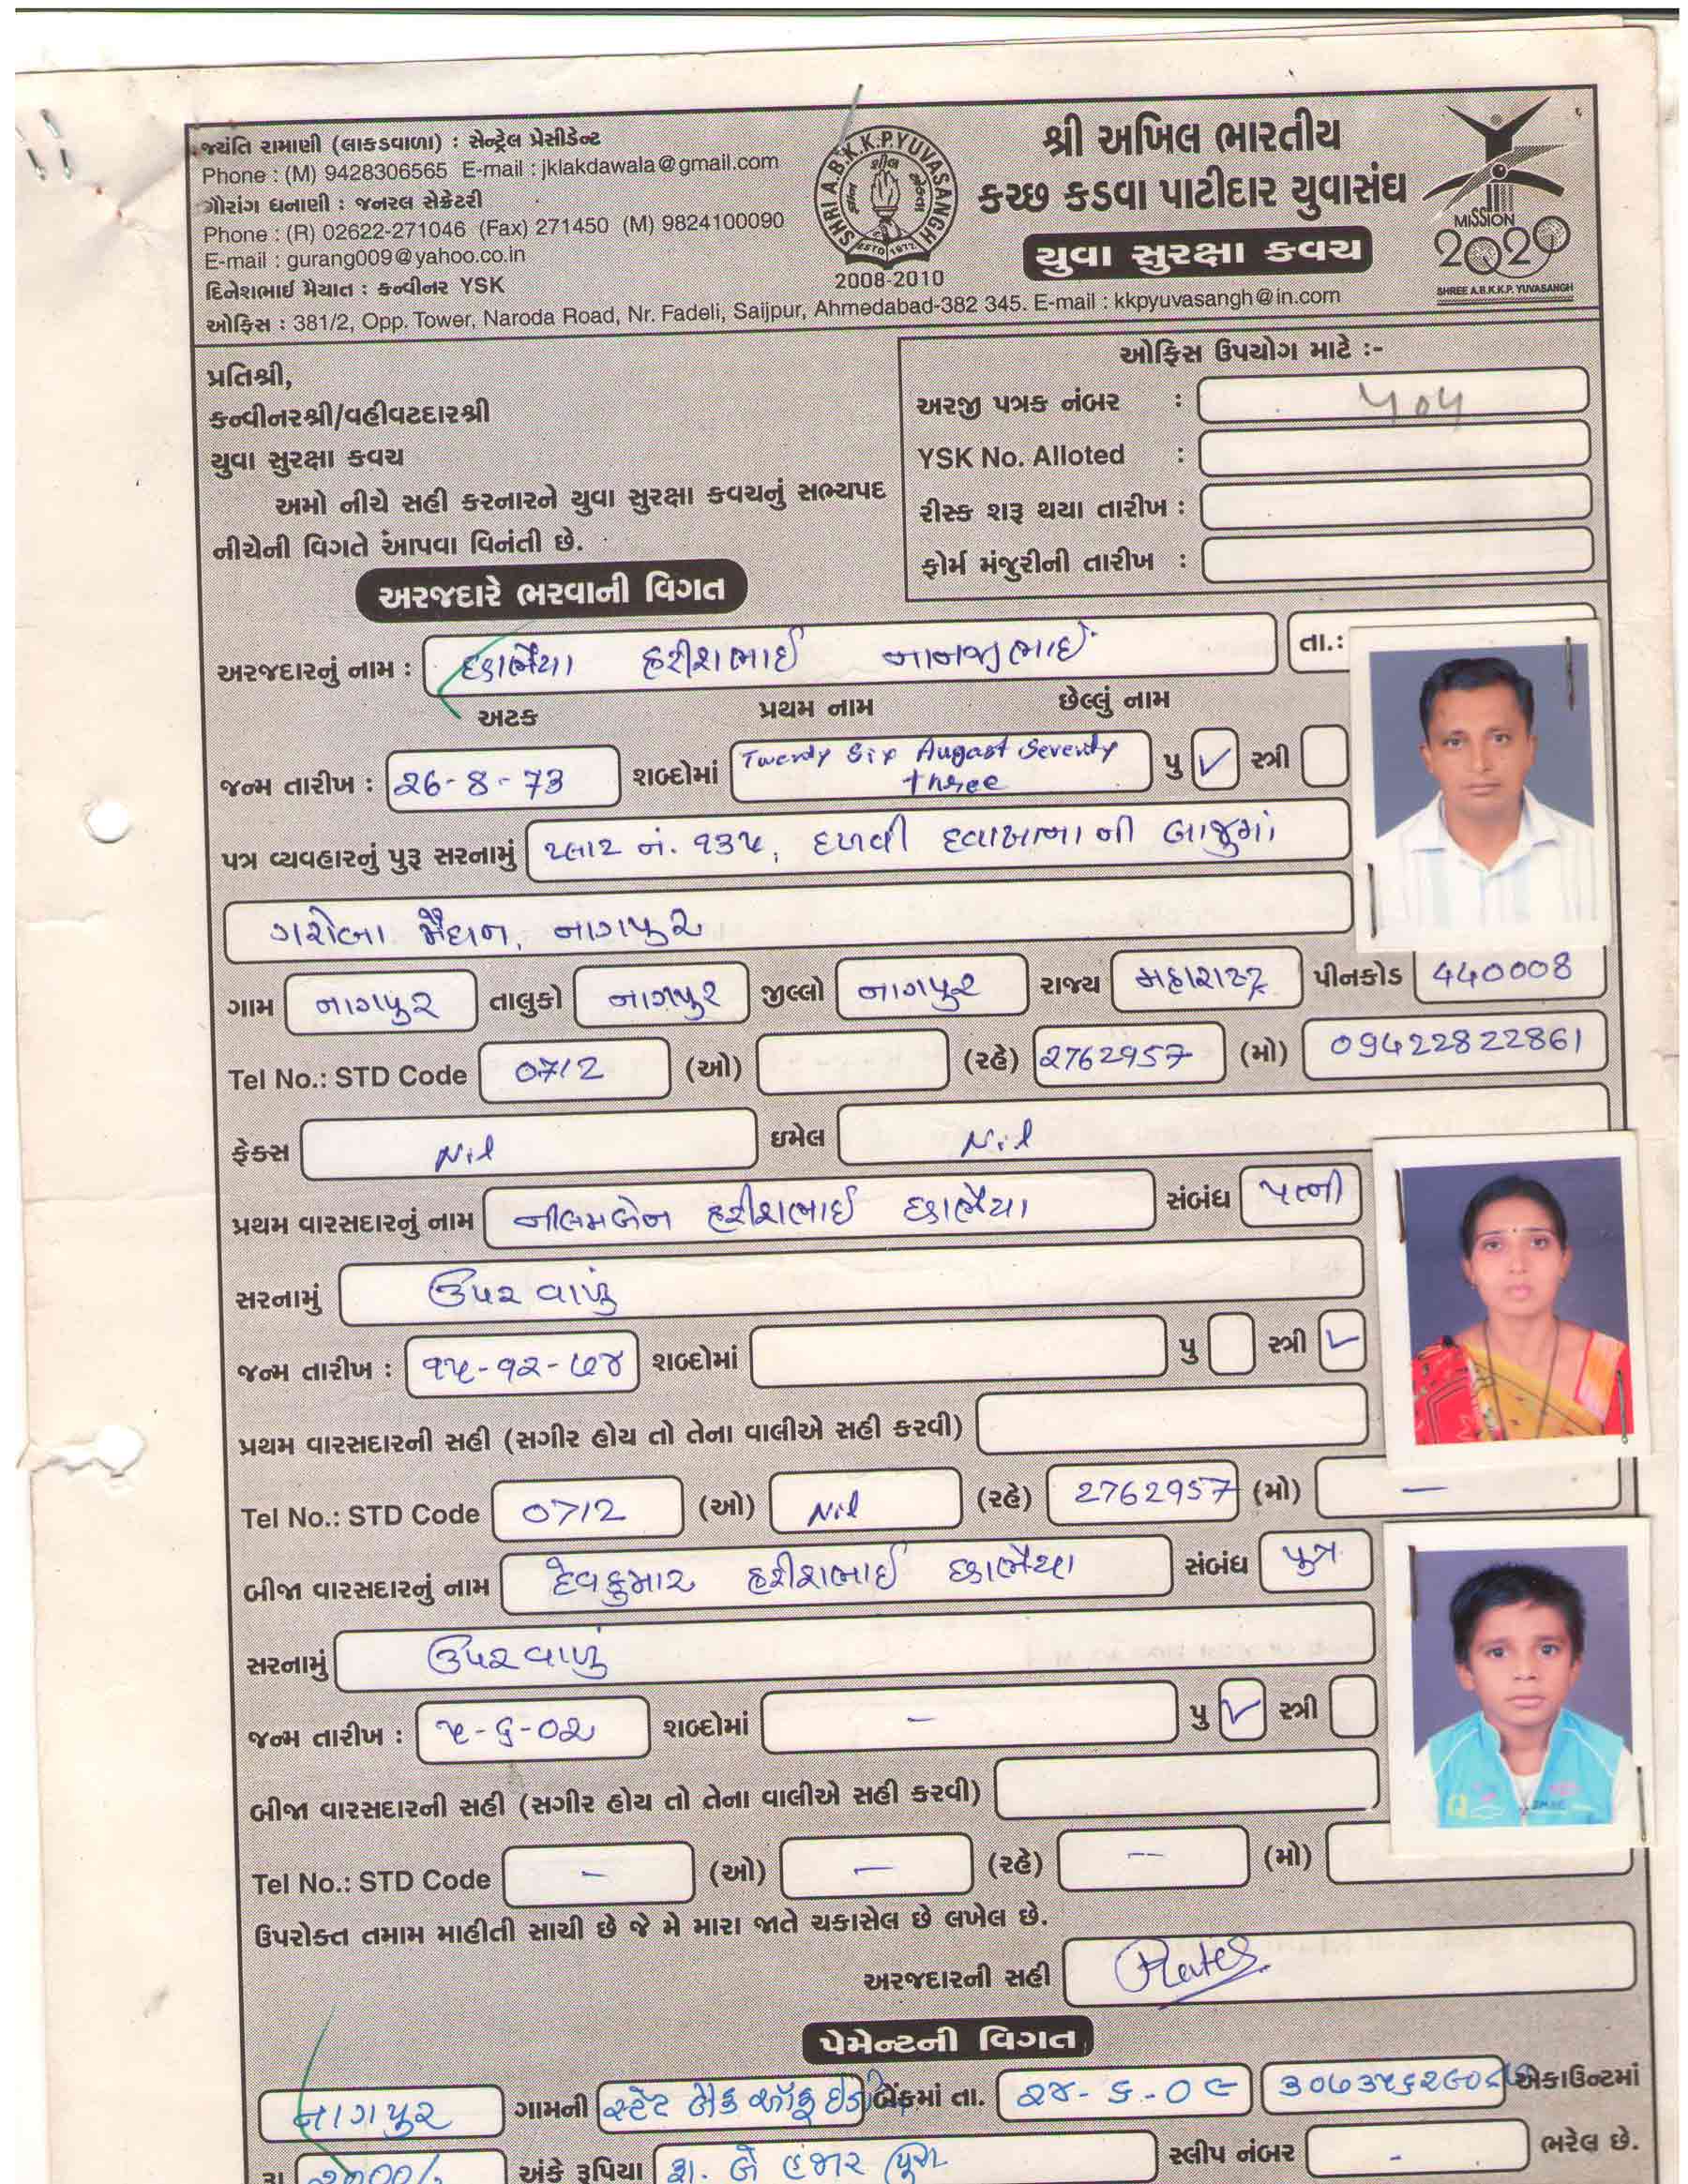 જ્યંતિ રામાણી (લાકડવાળા) : સેન્ટ્રેલ પ્રેસીડેન્ટ
Phone : (M) 9428306565 E-mail : jklakdawala@gmail.com
ગૌરાંગ ધનાણી : જનરલ સેક્રેટરી
Phone : (R) 02622-271046 (Fax) 271450 (M) 9824100090
E-mail : gurang009@yahoo.co.in
દિનેશભાઈ મૈયાત : કન્વીનર YSK
ઓફિસ : 381/2, Opp. Tower, Naroda Road, Nr. Fadeli, Saijpur, Ahmedabad-382 345. E-mail : kkpyuvasangh@in.com
SHRI A.B.K.K.P.YUVASANGH
શીલ
ESTD 1977
2008-2010
શ્રી અખિલ ભારતીય
કચ્છ કડવા પાટીદાર યુવાસંઘ
યુવા સુરક્ષા કવચ
MISSION
2020
SHREE A.B.K.K.P. YUVASANGH
પ્રતિશ્રી,
કન્વીનરશ્રી/વહીવટદારશ્રી
યુવા સુરક્ષા કવચ
અમો નીચે સહી કરનારને યુવા સુરક્ષા કવચનું સભ્યપદ
નીચેની વિગતે આપવા વિનંતી છે.
ઓફિસ ઉપયોગ માટે :-
અરજી પત્રક નંબર : ૫૦૫
YSK No. Alloted :
રીસ્ક શરૂ થયા તારીખ :
ફોર્મ મંજુરીની તારીખ :
અરજદારે ભરવાની વિગત
અરજદારનું નામ : છાભૈયા હરીશભાઈ નાનજીભાઈ તા.:
અટક પ્રથમ નામ છેલ્લું નામ
જન્મ તારીખ : 26-8-73 શબ્દોમાં Twenty Six Augast Seventy three પુ ✓ સ્ત્રી
પત્ર વ્યવહારનું પુરૂ સરનામું પ્લાટ નં. ૧૩૫, દળવી દવાખાના ની બાજુમાં
ગરોબા મૈદાન, નાગપુર
ગામ નાગપુર તાલુકો નાગપુર જીલ્લો નાગપુર રાજ્ય મહારાષ્ટ્ર પીનકોડ 440008
Tel No.: STD Code 0712 (ઓ) (રહે) 2762957 (મો) 09422822861
ફેક્સ Nil ઇમેલ Nil
પ્રથમ વારસદારનું નામ નીલમબેન હરીશભાઈ છાભૈયા સંબંધ પત્ની
સરનામું ઉપર વાળું
જન્મ તારીખ : ૧૫-૧૨-૭૪ શબ્દોમાં પુ સ્ત્રી ✓
પ્રથમ વારસદારની સહી (સગીર હોય તો તેના વાલીએ સહી કરવી)
Tel No.: STD Code 0712 (ઓ) Nil (રહે) 2762957 (મો) —
બીજા વારસદારનું નામ દેવકુમાર હરીશભાઈ છાભૈયા સંબંધ પુત્ર
સરનામું ઉપર વાળું
જન્મ તારીખ : ૫-૬-૦૨ શબ્દોમાં - પુ ✓ સ્ત્રી
બીજા વારસદારની સહી (સગીર હોય તો તેના વાલીએ સહી કરવી)
Tel No.: STD Code - (ઓ) - (રહે) - (મો)
ઉપરોક્ત તમામ માહીતી સાચી છે જે મે મારા જાતે ચકાસેલ છે લખેલ છે.
અરજદારની સહી
પેમેન્ટની વિગત
નાગપુર ગામની સ્ટેટ બેંક ઑફ ઇંડી બેંકમાં તા. ૨૪-૬-૦૯ એકાઉન્ટમાં
રૂા ૨૦૦૦/- અંકે રૂપિયા રૂા. બે હજાર પૂરા સ્લીપ નંબર - ભરેલ છે.